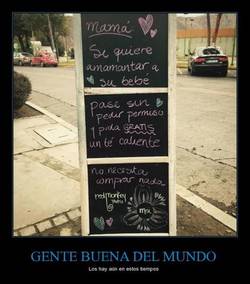 Mamá
Se quiere
amamantar a
su bebé
pase sin
pedir permiso
y pida GRATIS
un té caliente
no necesita
comprar nada
red monkey
GENTE BUENA DEL MUNDO
Los hay aún en estos tiempos